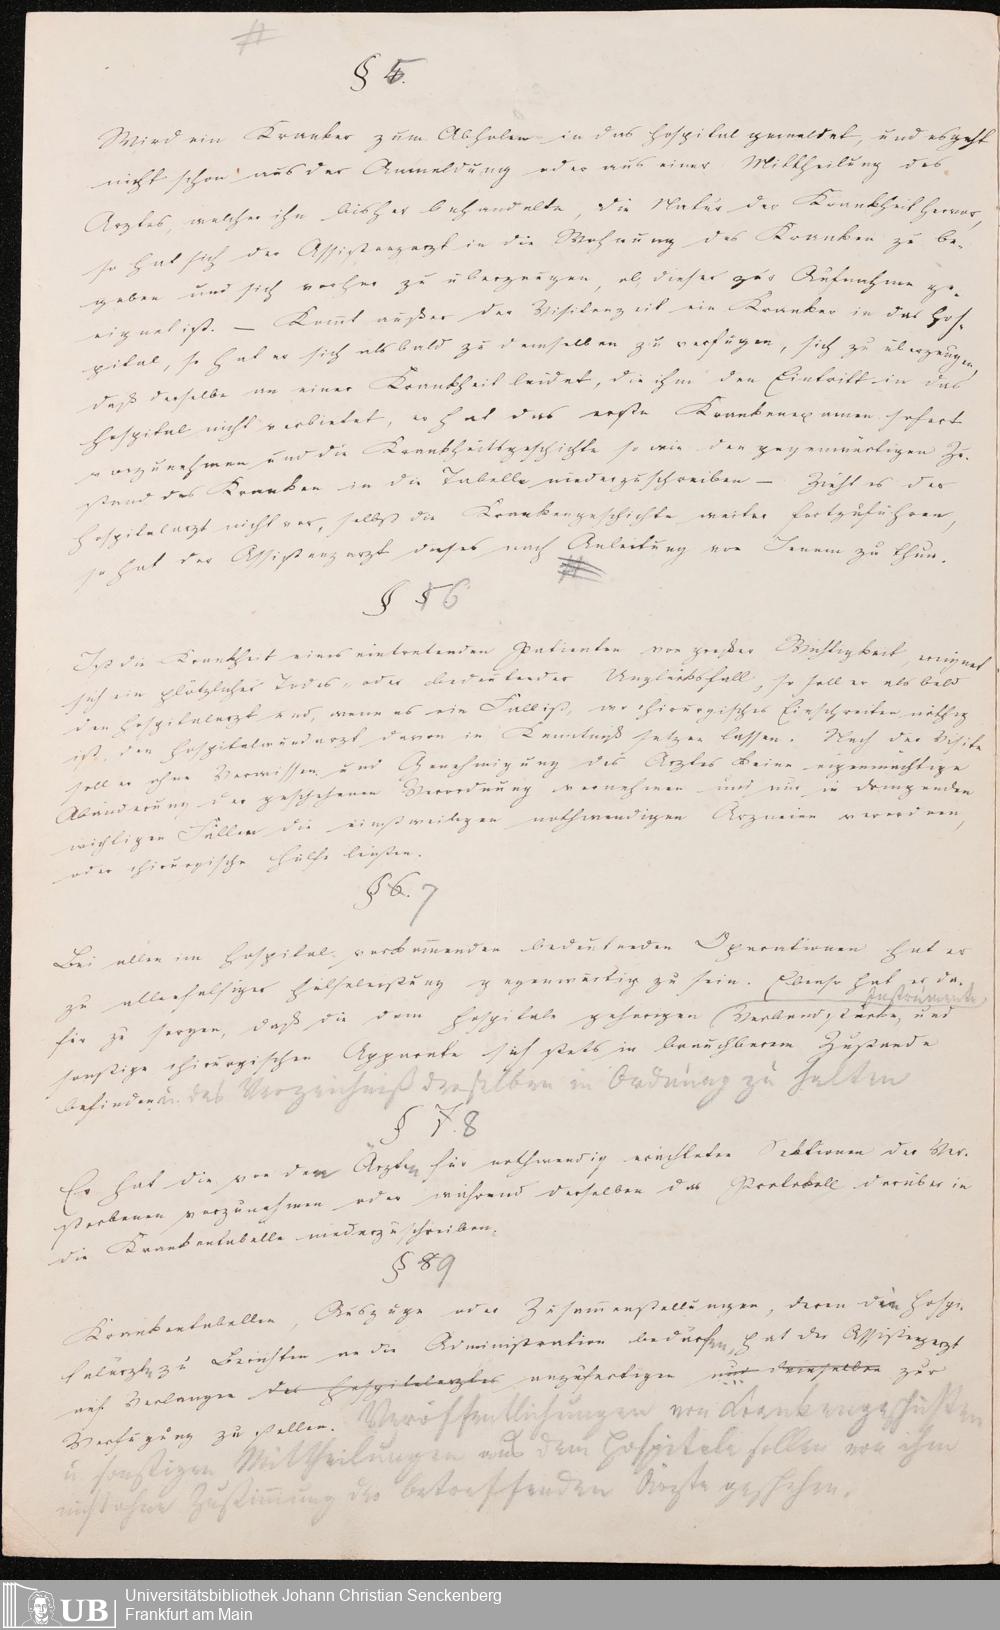 #
§ 5.
Wird ein Kranker zum Abholen in das Hospital gemeldet, und es geht
nicht schon aus der Anmeldung oder aus einer Mittheilung des
Arztes, welcher ihn bisher behandelte, die Natur der Krankheit hervor,
so hat sich der Assistenzarzt in die Wohnung des Kranken zu be-
geben und sich vorher zu überzeugen, ob dieser zur Aufnahme ge-
eignet ist. — Kommt außer der Visitenzeit ein Kranker in das Hos-
pital, so hat er sich alsbald zu demselben zu verfügen, sich zu überzeugen,
daß derselbe an einer Krankheit leidet, die ihm den Eintritt in das
Hospital nicht verbietet, er hat das erste Krankenexamen sofort
vorzunehmen und die Krankheitsgeschichte so wie den gegenwärtigen Zu-
stand des Kranken in die Tabelle niederzuschreiben — Zieht es der
Hospitalarzt nicht vor, selbst die Krankengeschichte weiter fortzuführen,
so hat der Assistenzarzt dieses nach Anleitung von Jenem zu thun.
#
§ 5 6
Ist die Krankheit eines eintretenden Patienten von großer Wichtigkeit, ereignet
sich ein plötzlicher Todes- oder bedeutender Unglücksfall, so soll er alsbald
den Hospitalarzt und, wenn es ein Fall ist, wo chirurgisches Einschreiten nöthig
ist, den Hospitalwundarzt davon in Kenntniß setzen lassen. Nach der Visite
soll er ohne Vorwissen und Genehmigung des Arztes keine eigenmächtige
Abänderung der geschehenen Verordnung vornehmen und nur in dringenden
wichtigen Fällen die einstweiligen nothwendigen Arzneien verordnen,
oder chirurgische Hülfe leisten.
§ 6. 7
Bei allen im Hospital vorkommenden bedeutenden Operationen hat er
zu allenfalsiger Hülfeleistung gegenwärtig zu sein. Ebenso hat er da-
Instrumente,
für zu sorgen, daß die dem Hospitale gehörigen Verbandstücke, und
sonstige chirurgischen Apparate sich stets in brauchbarem Zustande
befinden u. das Verzeichniß derselben in Ordnung zu halten
§ 7. 8
Er hat die von den Ärzten für nothwendig erachteten Sektionen der Ver-
storbenen vorzunehmen oder während derselben das Protokoll darüber in
die Krankentabelle niederzuschreiben.
§ 8 9
Krankentabellen, Auszüge oder Zusammenstellungen, deren die Hospi-
talärzte zu Berichten an die Administration bedürfen, hat der Assistenzarzt
auf Verlangen des Hospitalarztes anzufertigen und demselben zur
Verfügung zu stellen. Veröffentlichungen von Krankengeschichten
u. sonstigen Mittheilungen aus dem Hospitale sollen von ihm
nicht ohne Zustimmung der betreffenden Ärzte geschehen.
UB
Universitätsbibliothek Johann Christian Senckenberg
Frankfurt am Main